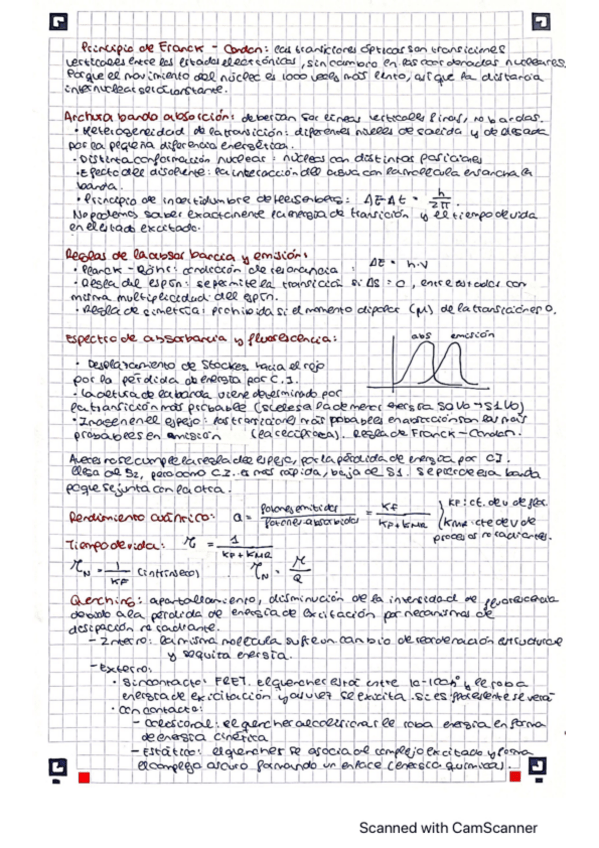 Principio de Franck - Condon: las transiciones ópticas son transiciones
verticales entre los estados electrónicos, sin cambio en las coordenadas nucleares.
Porque el movimiento del núcleo es 1000 veces más lento, así que la distancia
internuclear será constante.
Anchura banda absorción: deberían ser líneas verticales finas, no bandas.
• Heterogeneidad de la transición: diferentes niveles de salida y de llegada
por la pequeña diferencia energética.
• Distinta conformación nucleas: núcleos con distintas posiciones
• Efecto del disolvente: la interacción del agua con la molécula ensancha la
banda.
• Principio de incertidumbre de Heisenberg: ΔE Δt = h / 2π.
No podemos saber exactamente la energía de transición y el tiempo de vida
en el estado excitado.
Reglas de la absorbancia y emisión:
• Planck - Böhr: condición de resonancia: ΔE = h·ν
• Regla del espín: se permite la transición si ΔS = 0, entre estados con
misma multiplicidad del espín.
• Regla de simetría: prohibida si el momento dipolar (μ) de la transición es 0.
Espectro de absorbancia y fluorescencia:
abs emisión
• Desplazamiento de Stockes hacia el rojo
por la pérdida de energía por C.I.
• La altura de la banda viene determinado por
la transición más probable (suele ser la de menor energía S0V0→S1V0)
• Imagen en el espejo: las transiciones más probables en absorción son las más
probables en emisión (ea recíproca). Regla de Franck - Condon.
A veces no se cumple la regla del espejo, por la pérdida de energía por CI.
llega de S2, pero como C.I. es más rápida, baja de S1. Se pierde esa banda
porque se junta con la otra.
Rendimiento cuántico: Q = Fotones emitidos / Fotones absorbidos = KF / KF + KNR } KF: ct. de v de flex.
KNR: cte de v de
procesos no radiantes.
Tiempo de vida: τ = 1 / KF + KNR
τN = 1 / KF (intrínseco) τN = τ / Q
Quenching: apantallamiento, disminución de la intensidad de fluorescencia
debido a la pérdida de energía de excitación por mecanismos de
disipación no radiante.
– Interno: la misma molécula sufre un cambio de reordenación estructural
y se quita energía.
– Externo:
• Sin contacto: FRET. el quencher está entre 10-100Å y le roba
energía de excitación y a su vez se excita. Si es fluorescente se verá
• Con contacto:
– Colisional: el quencher al colisionar le roba energía en forma
de energía cinética
– Estático: el quencher se asocia al complejo excitado y forma
el complejo oscuro formando un enlace (energía química).
Scanned with CamScanner